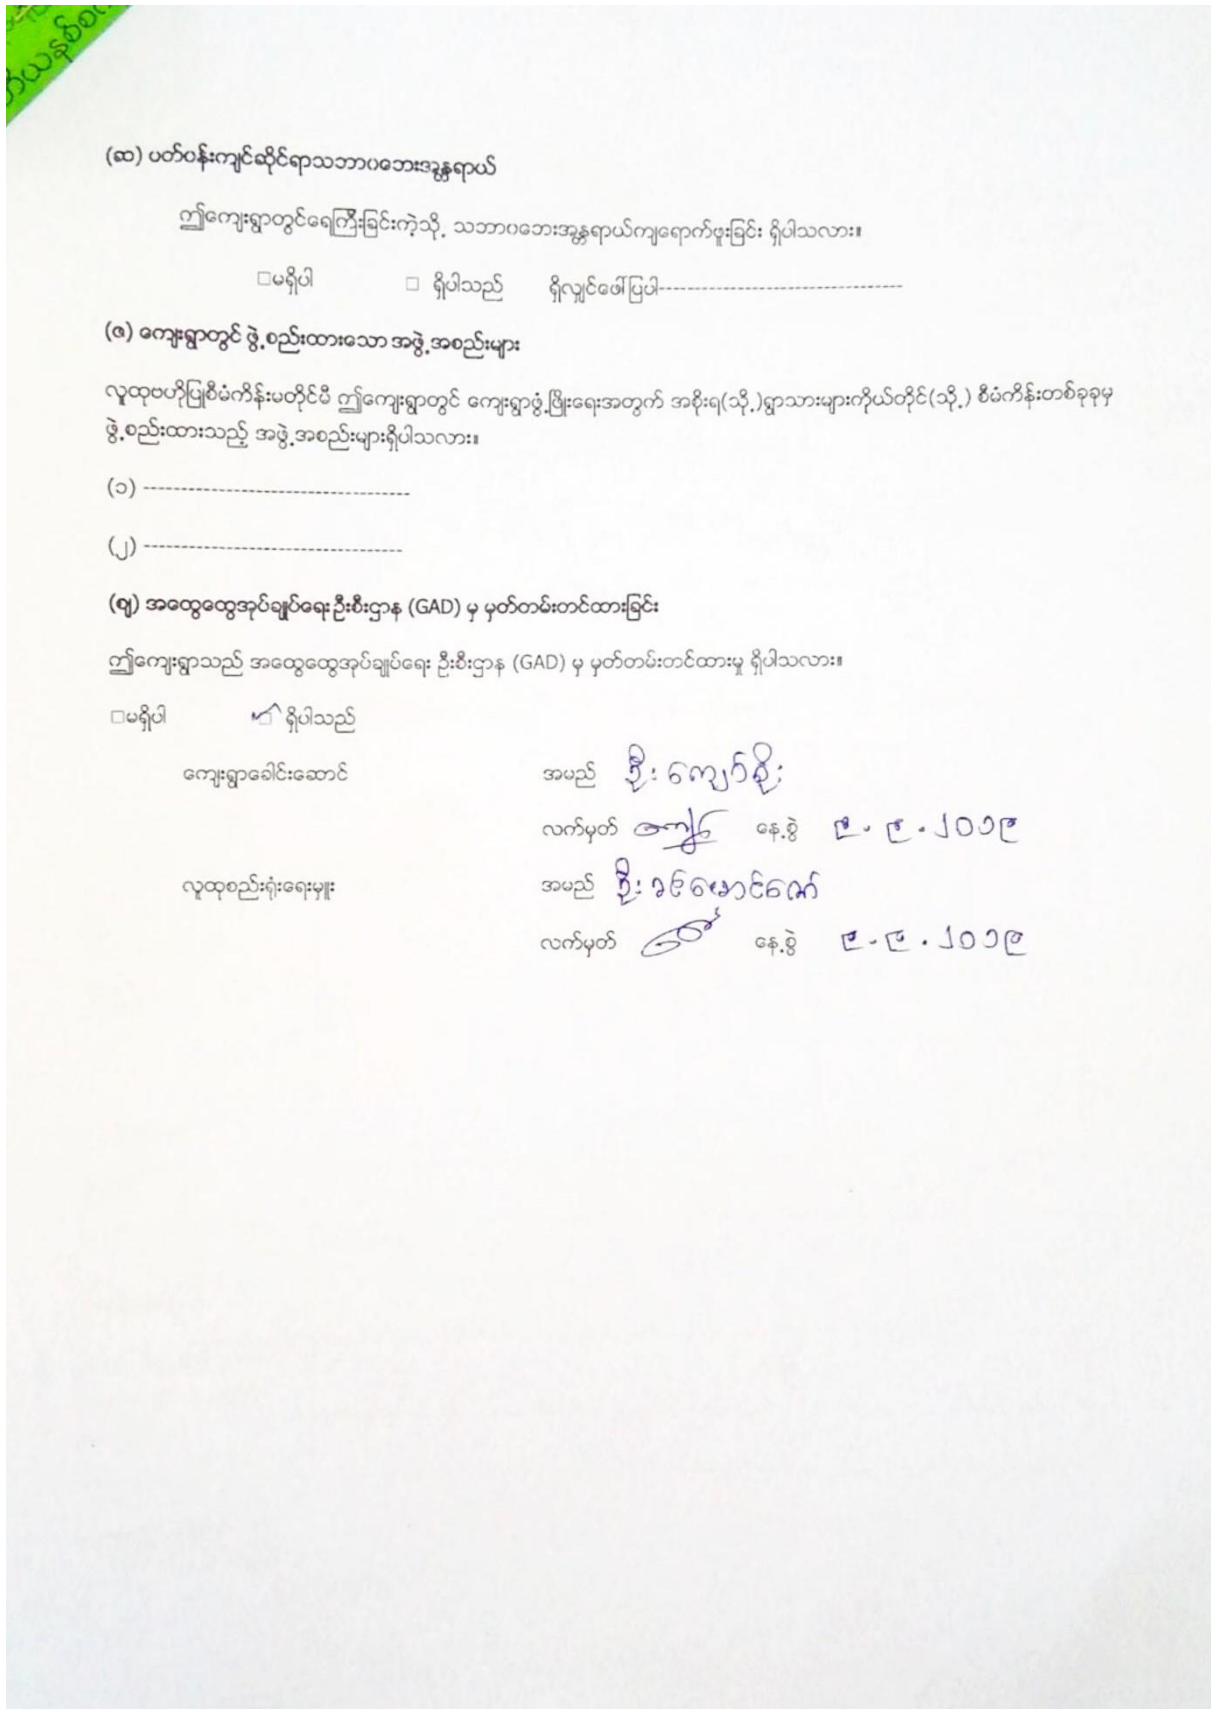 (ဆ) ပတ်ဝန်းကျင်ဆိုင်ရာသဘာဝဘေးအန္တရာယ်
ဤကျေးရွာတွင်ရေကြီးခြင်းကဲ့သို့ သဘာဝဘေးအန္တရာယ်ကျရောက်ဖူးခြင်း ရှိပါသလား။
□မရှိပါ □ ရှိပါသည် ရှိလျှင်ဖေါ်ပြပါ----------------------------------
(ဇ) ကျေးရွာတွင် ဖွဲ့စည်းထားသော အဖွဲ့အစည်းများ
လူထုဗဟိုပြုစီမံကိန်းမတိုင်မီ ဤကျေးရွာတွင် ကျေးရွာဖွံ့ဖြိုးရေးအတွက် အစိုးရ(သို့)ရွာသားများကိုယ်တိုင်(သို့) စီမံကိန်းတစ်ခုခုမှ
ဖွဲ့စည်းထားသည့် အဖွဲ့အစည်းများရှိပါသလား။
(၁) ------------------------------------
(၂) -----------------------------------
(ဈ) အထွေထွေအုပ်ချုပ်ရေးဦးစီးဌာန (GAD) မှ မှတ်တမ်းတင်ထားခြင်း
ဤကျေးရွာသည် အထွေထွေအုပ်ချုပ်ရေး ဦးစီးဌာန (GAD) မှ မှတ်တမ်းတင်ထားမှု ရှိပါသလား။
□မရှိပါ ☑ ရှိပါသည်
ကျေးရွာခေါင်းဆောင် အမည် ဦးကျော်စိုး
လက်မှတ် နေ့စွဲ ၉.၉.၂၀၁၉
လူထုစည်းရုံးရေးမှူး အမည် ဦး
လက်မှတ် နေ့စွဲ ၉.၉.၂၀၁၉